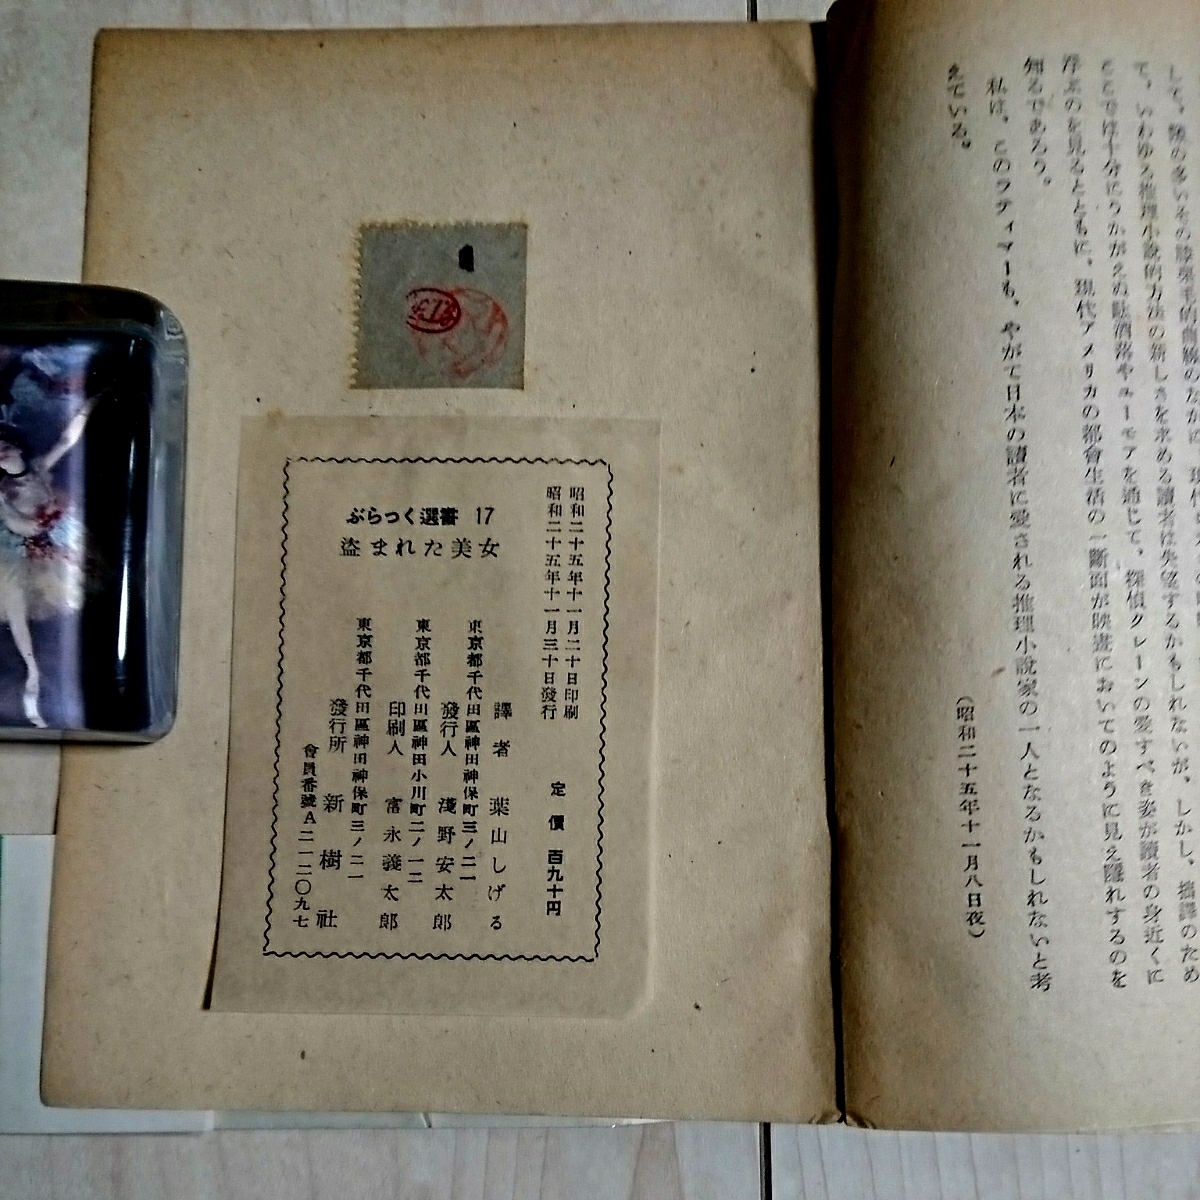 て、いわゆる推理小説的方法の新しさを求める讀者は失望するかもしれないが、しかし、拙譯のため
ここでは十分にうかがえぬ駄洒落やユーモアを通じて、探偵クレーンの愛すべき姿が讀者の身近くに
浮ぶのを見るとともに、現代アメリカの都會生活の一斷面が映畫においてのように見え隱れするのを
知るであろう。
私は、このラティマーも、やがて日本の讀者に愛される推理小説家の一人となるかもしれないと考
えている。
(昭和二十五年十一月八日夜)
昭和二十五年十一月二十日印刷
昭和二十五年十一月三十日發行
定價 百九十円
ぶらっく選書 17
盗まれた美女
譯者 葉山しげる
東京都千代田區神田神保町三ノ二一
發行人 淺野安太郎
東京都千代田區神田小川町二ノ一二
印刷人 富永義太郎
東京都千代田區神田神保町三ノ二一
發行所 新樹社
會員番號A二一二〇九七